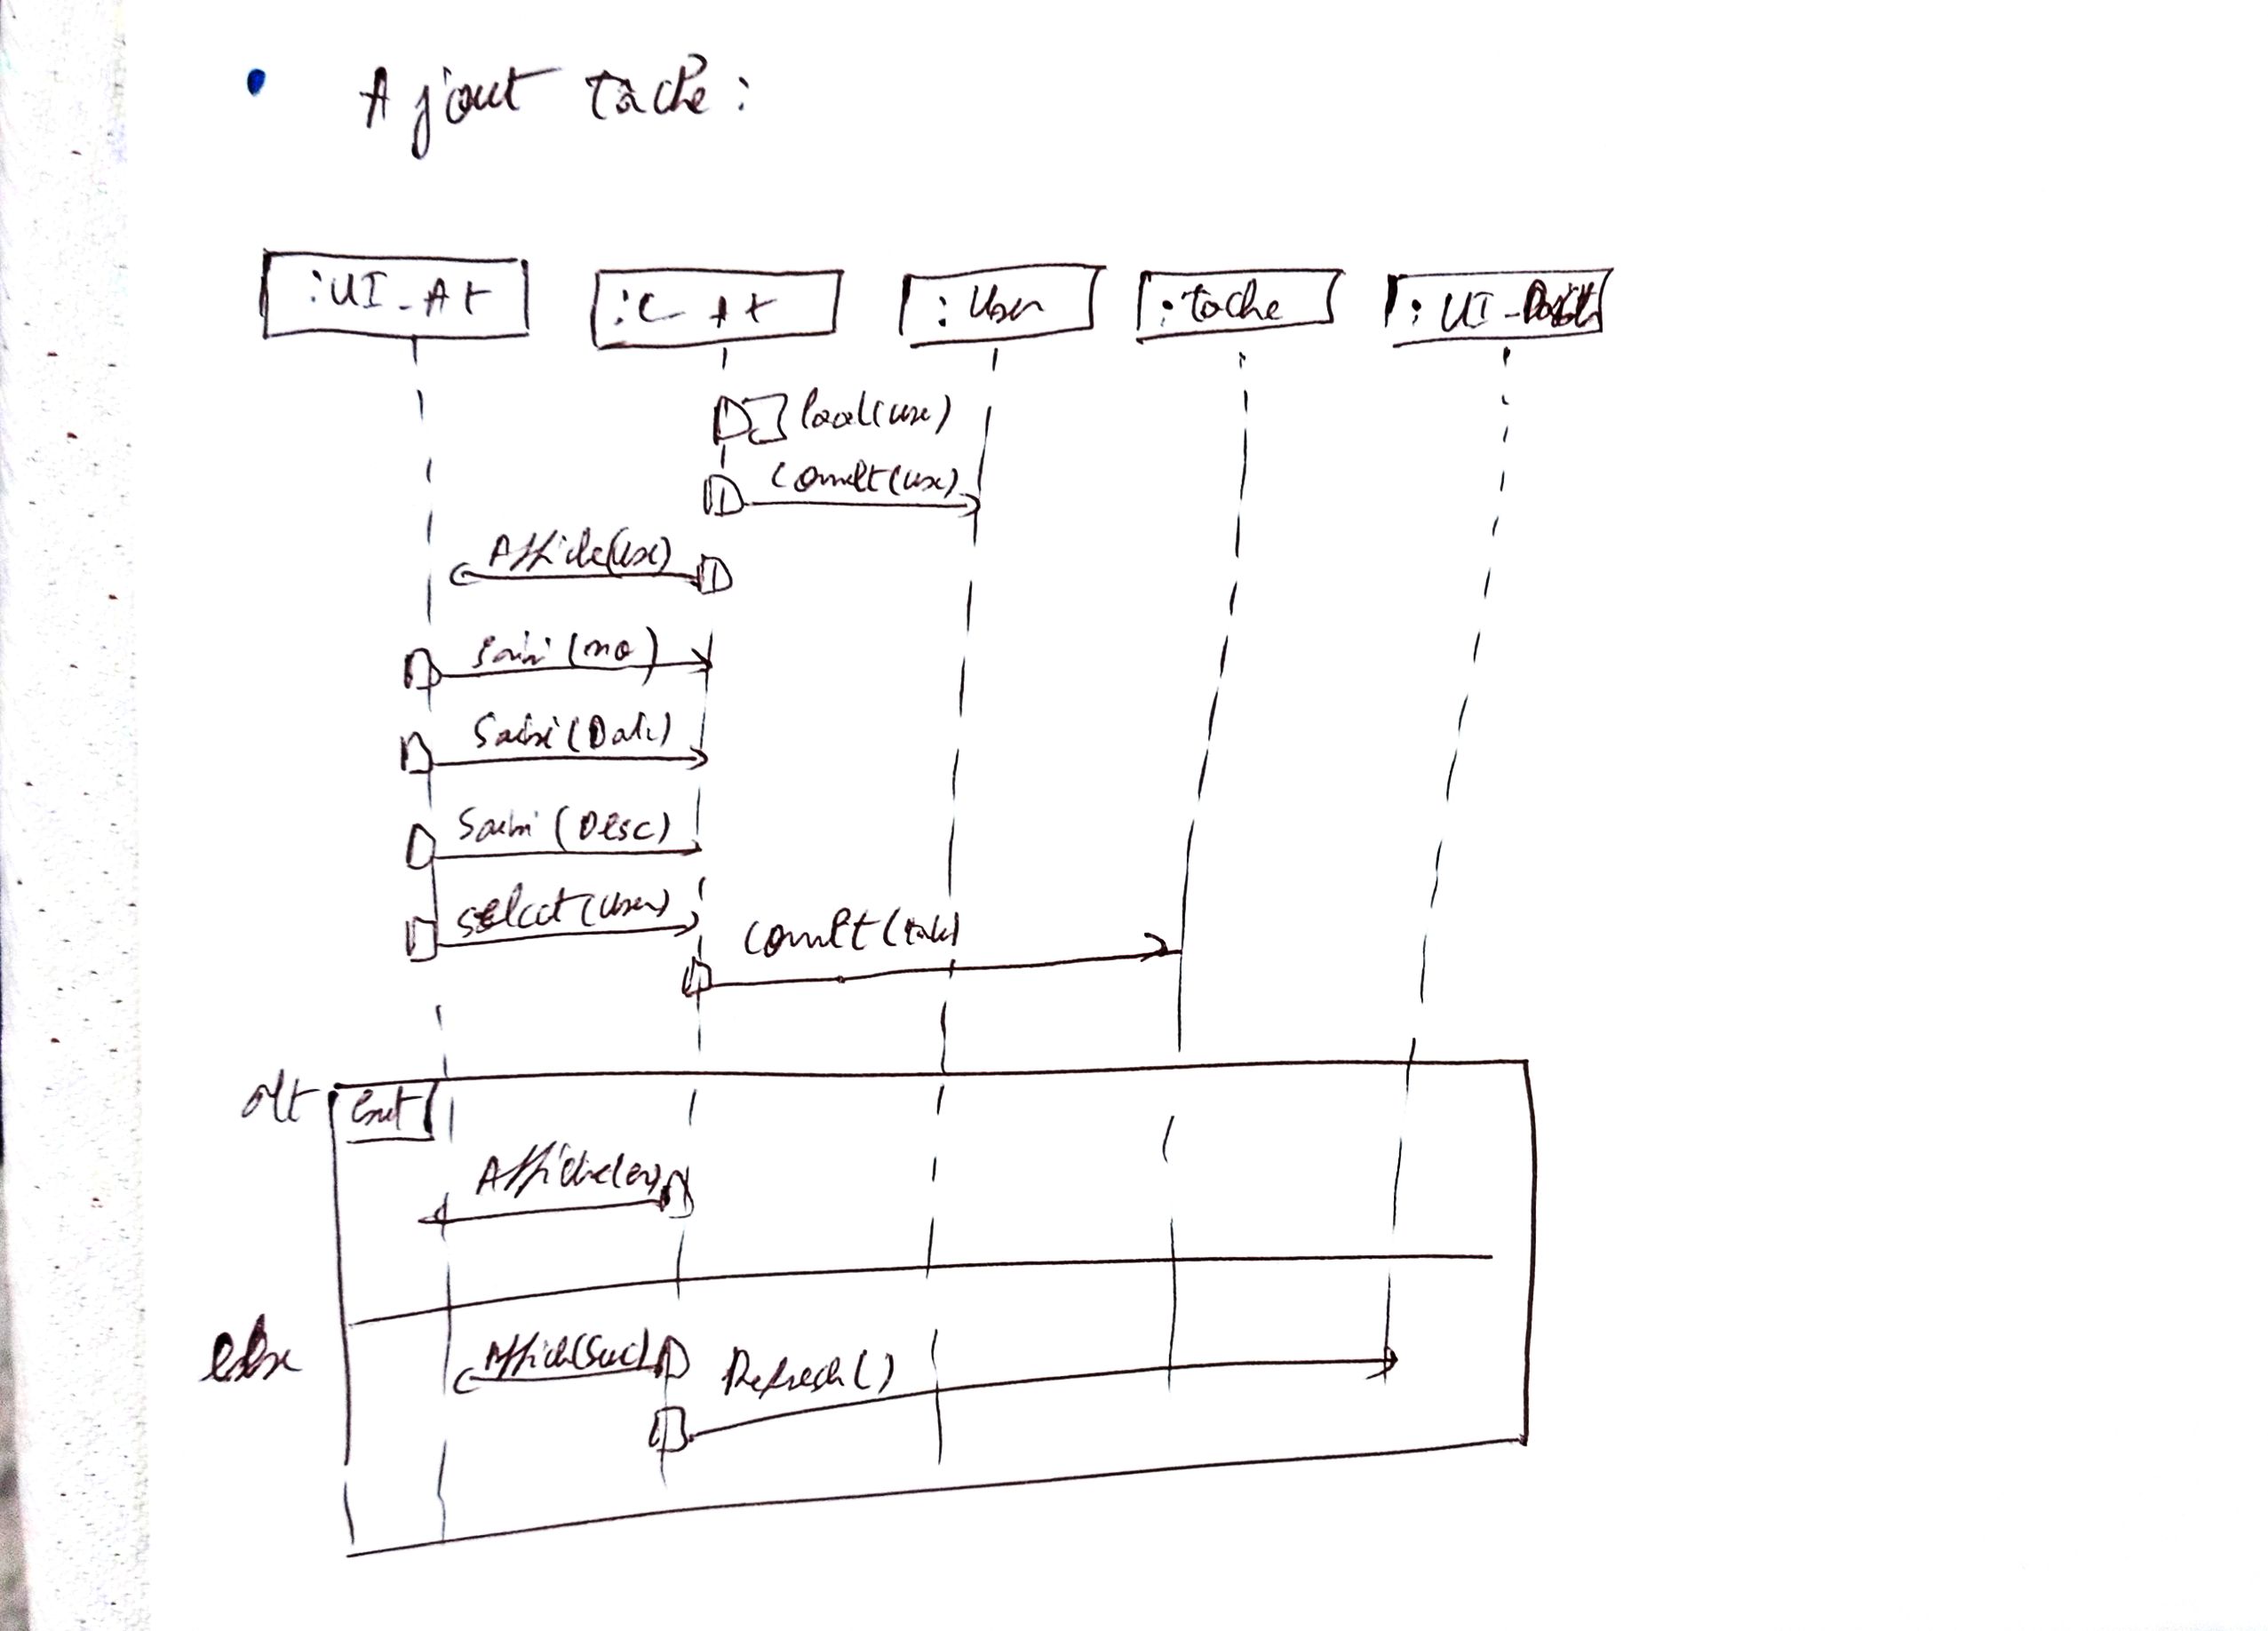 • Ajout tache :
:UI_At
:C_At
:User
:tache
:UI_
load(use)
Comlt(use)
Affiche(use)
Saisi(no)
Saisi(Date)
Saisi(Desc)
select(user)
Comlt(
alt
Affiche(er)
else
Affich(suc)
Refresh()